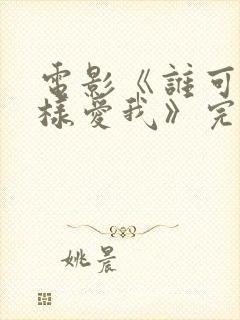 電影《誰可
樣愛我》完
姚晨